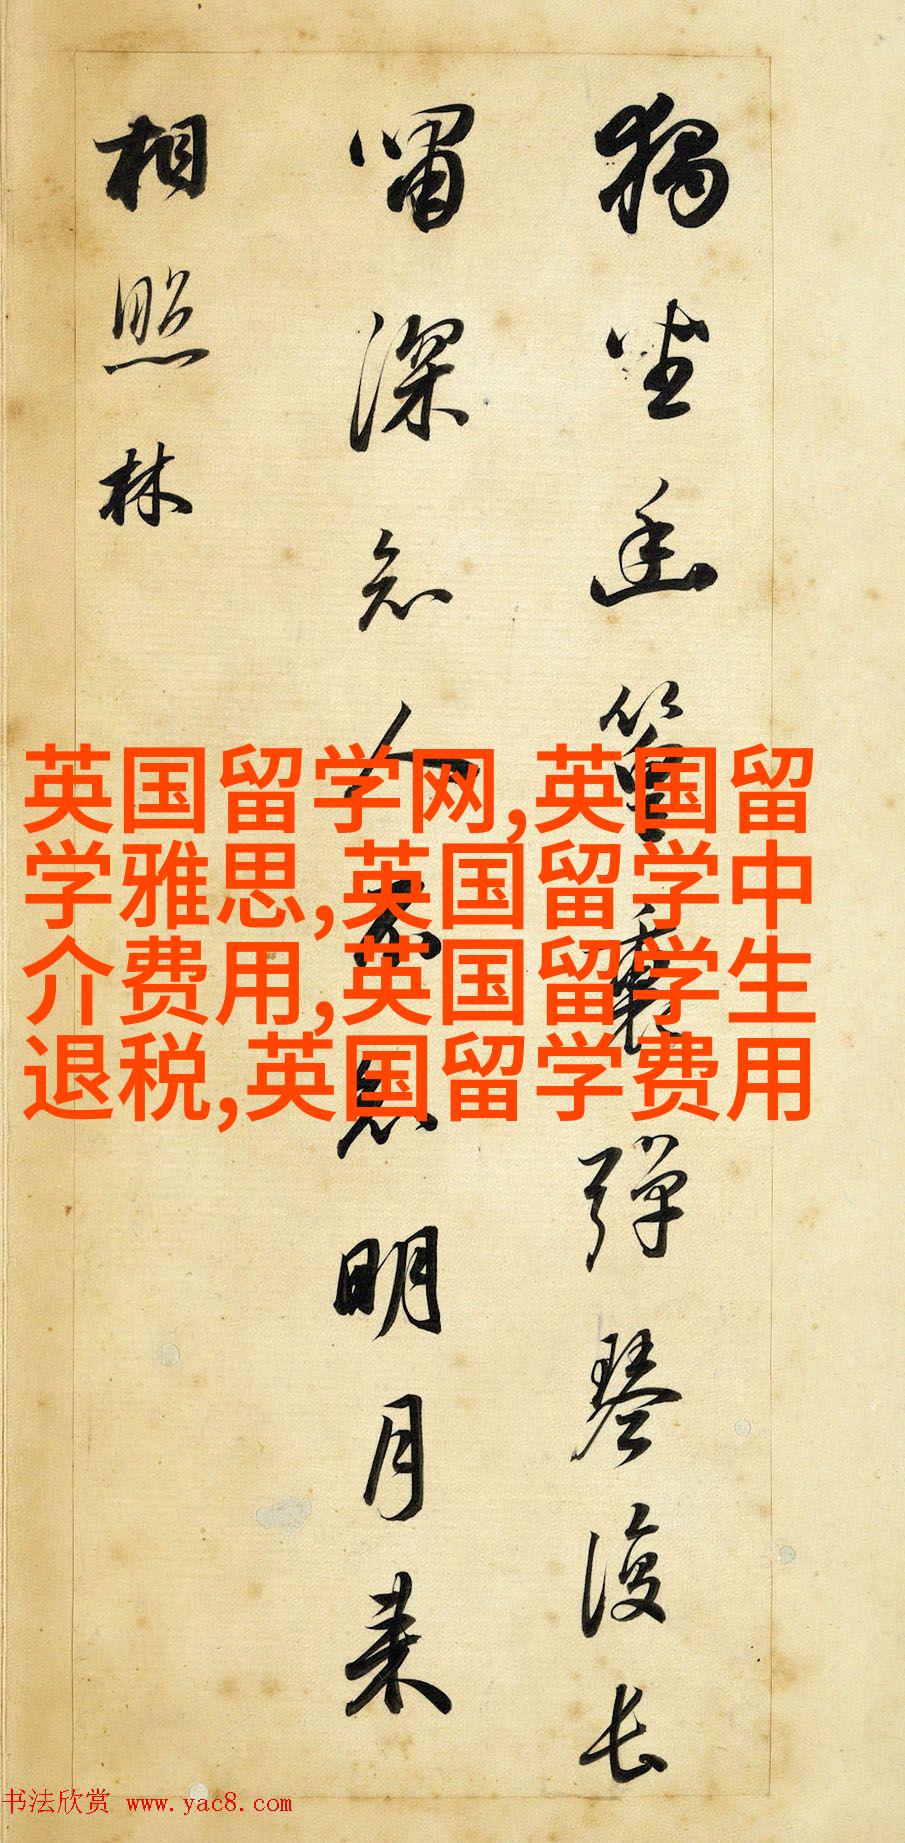 獨坐幽篁裏彈琴復長
嘯深知人不知明月来
相照林
英国留学网,英国留
学雅思,英国留学中
介费用,英国留学生
退税,英国留学费用
书法欣赏 www.yac8.com